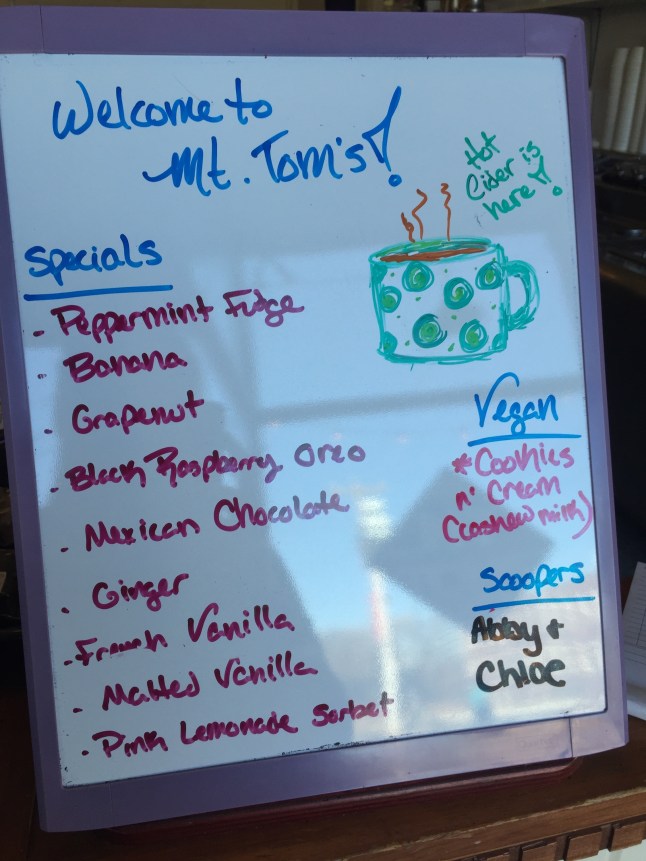 Welcome to
Mt. Tom's!
Hot
Cider is
here!
Specials
- Peppermint Fudge
- Banana
- Grapenut
- Black Raspberry Oreo
- Mexican Chocolate
- Ginger
- French Vanilla
- Malted Vanilla
- Pink Lemonade Sorbet
Vegan
*Cookies
n' Cream
(cashew milk)
Scoopers
Abby +
Chloe